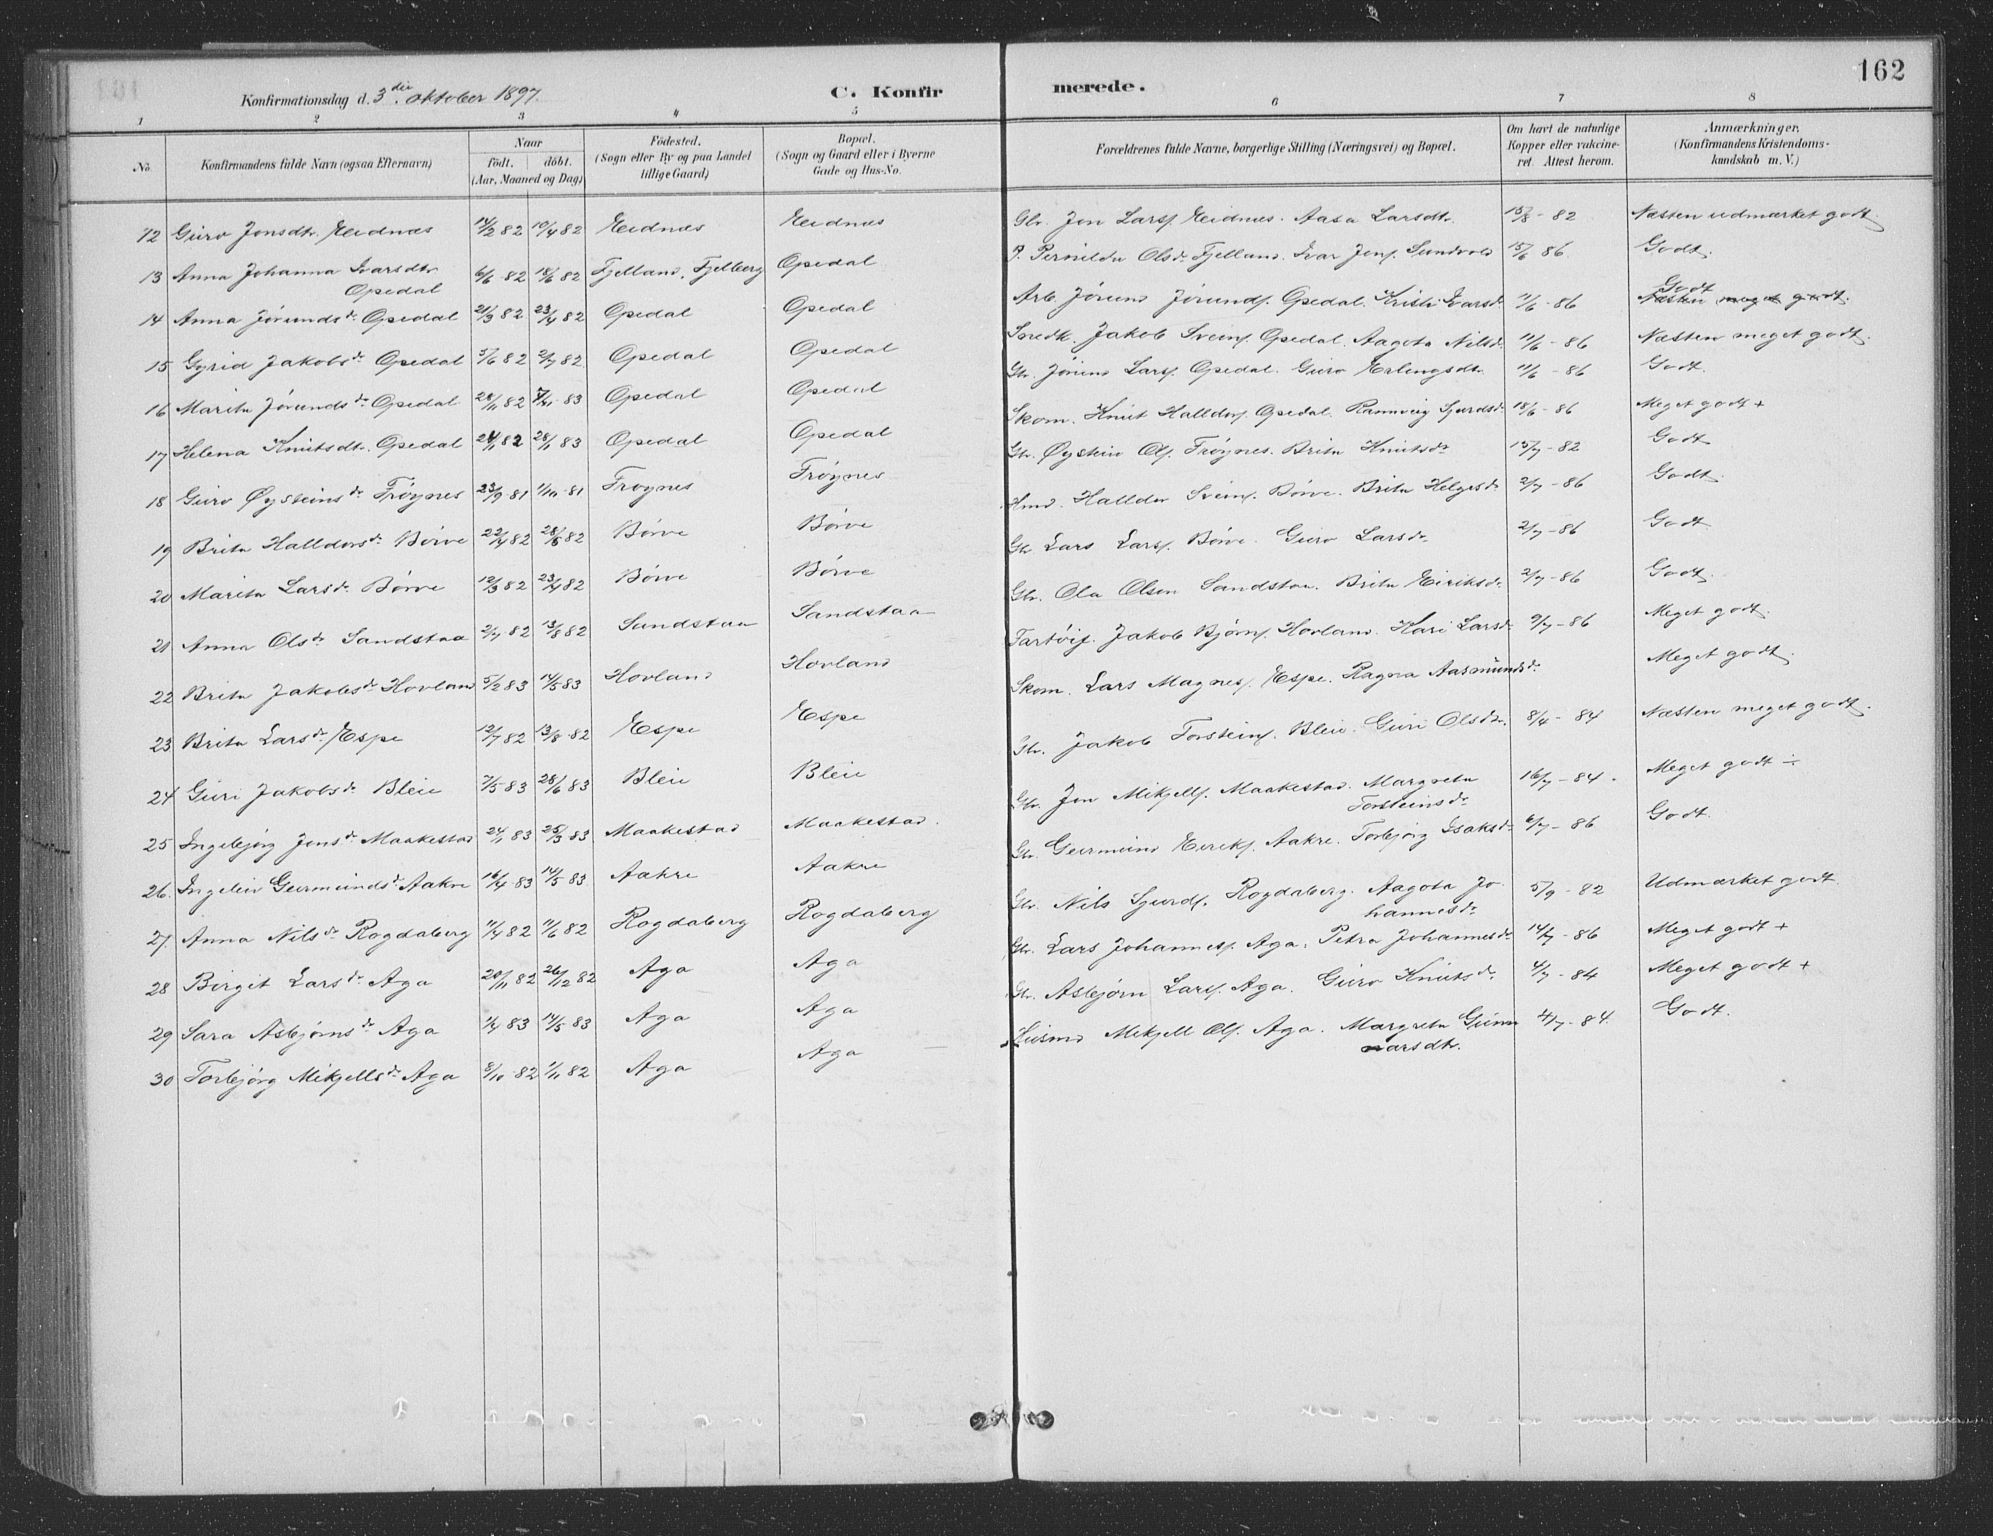 162
Konfirmationsdag d. 3die oktober 1897.
C. Konfirmerede.
1 2 3 4 5 6 7 8
No. Konfirmandens fulde Navn (ogsaa Efternavn) Naar födt. döbt. (Aar, Maaned og Dag) Födested. (Sogn eller By og paa Landet tillige Gaard) Bopæl. (Sogn og Gaard eller i Byerne Gade og Hus-No. Forældrenes fulde Navne, borgerlige Stilling (Næringsvei) og Bopæl. Om havt de naturlige Kopper eller vaccineret. Attest herom. Anmærkninger. (Konfirmandens Kristendomskundskab m. V.)
12 Guro Jonsdtr. Eidnæs 14/2 82 10/4 82 Eidnæs Eidnæs Gbr. Jon Larss. Eidnæs. Aasa Larsdtr. 15/8 - 82 Næsten udmærket godt.
13 Anna Johanna Ivarsdtr. 6/6 - 82 18/6 82 Fjelland, Fjelberg Opedal P. Pernilda Olsdr Fjelland. Ivar Jons. Sundvold 15/6 86. Godt.
Opedal
14 Anna Jørundsdr Opedal 21/3 82 23/4 82 Opedal Opedal Arb. Jørund Jørunds. Opedal. Kristi Ivarsdr 11/6 - 86 Godt
Næsten meget godt.
15 Gyrid Jakobsdr Opedal 5/6 82 2/7 82 Opedal Opedal Snedk. Jakob Sveins. Opedal. Aagota Nilsdr 11/6 - 86 Næsten meget godt.
16 Marita Jørundsdr Opedal 28/11 82 7/1 - 83 Opedal Opedal Gbr. Jørund Larss. Opedal. Guro Erlingsdtr. 11/6 - 86 Godt.
17 Helena Knutsdtr. Opedal 24/11 82 28/1 83 Opedal Opedal Skom. Knut Halldors. Opedal. Rannveig Sjurdsdr 18/6 - 86 Meget godt +
18 Guro Øysteinsdr Frøynes 23/9 81 1/10 - 81 Frøynes Frøynes Gbr. Øystein Ols. Frøynes. Brita Knutsdr 15/7 - 82 Godt
19 Brita Halldorsdr Børve 22/4 82 28/5 82 Børve Børve Hmd. Halldor Sveins. Børve. Brita Helgesdr 2/7 - 86 Godt.
20 Marita Larsdr Børve 12/3 82 23/4 82 Børve Børve Gbr. Lars Larss. Børve. Guro Larsdr 2/7 - 86 Godt
21 Anna Olsdr Sandstaa 2/7 82 13/8 82 Sandstaa Sandstaa Gbr. Ola Olsen Sandstaa. Brita Eiriksdr 2/7 - 86 Godt.
22 Brita Jakobsdr Hovland 5/2 83 14/5 83 Hovland Hovland Jakob Bjørns. Hovland. Kari Larsdr 9/7 - 86 Meget godt.
23 Brita Larsdr Espe 12/7 82 13/8 82 Espe Espe Skom. Lars Magnes. Espe. Ragna Aasmundsdr Meget godt.
24 Guri Jakobsdr Bleie 7/5 83 28/6 83 Bleie Bleie Gbr. Jakob Torsteins. Bleie. Guri Olsdr. 8/4 - 84 Næsten meget godt.
25 Ingebjørg Jonsdr Maakestad 24/1 83 25/3 83 Maakestad Maakestad. Gbr. Jon Mikjells. Maakestad. Margreta 16/7 - 84. Meget godt ÷
Torsteinsdr
26. Ingeleiv Geirmundsdr Aakre 16/4 83 14/5 83. Aakre Aakre Gbr. Geirmund Eiriks. Aakre. Torbjørg Isaksdr 6/7 - 86 Godt.
27. Anna Nilsdr Rogdaberg 11/4 82 11/6 82 Rogdaberg Rogdaberg Gbr. Nils Sjurds. Rogdaberg. Aagota Jo- 5/9 - 82 Udmærket godt.
hannesdr
28 Birgit Larsdr Aga 20/11 82 26/12 82 Aga Aga Gbr. Lars Johanness. Aga. Petra Johannesdr 14/7 - 86 Meget godt +
29 Sara Asbjørnsdr Aga 1/4 83 14/5 83 Aga Aga Gbr. Asbjørn Larss. Aga. Guro Knutsdr 4/7 - 84 Meget godt +
30 Torbjørg Mikjellsdr Aga 8/10 - 82 1/11 82 Aga Aga Husmd Mikjell Ols. Aga. Margreta Gunn 4/7 - 84. Godt.
arsdtr.